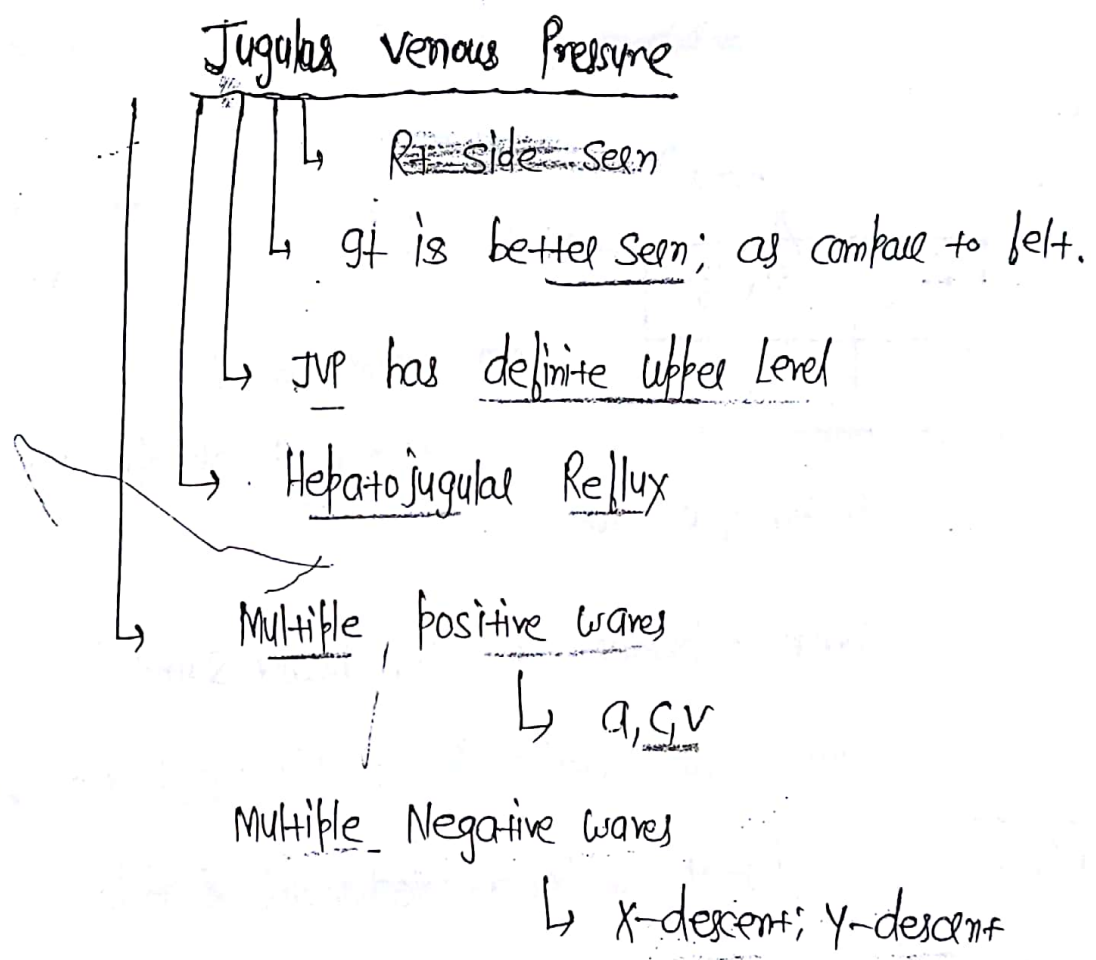 Jugular Venous Pressure
Rt side seen
It is better seen; as compare to felt.
JVP has definite upper Level
Hepatojugular Reflux
Multiple, positive waves
a, c, v
Multiple Negative waves
X-descent; Y-descent